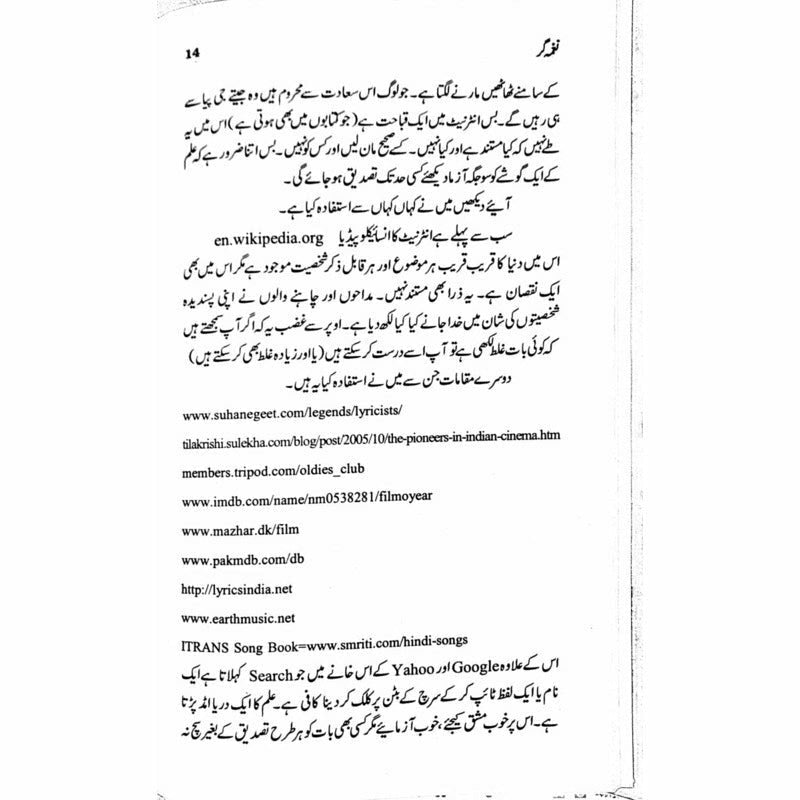 14
نغمہ گر
کے سامنے ٹھاٹھیں مارنے لگتا ہے۔ جو لوگ اس سعادت سے محروم ہیں وہ جیتے جی پیاسے
ہی رہیں گے۔ بس انٹرنیٹ میں ایک قباحت ہے (جو کتابوں میں بھی ہوتی ہے) اس میں یہ
طے نہیں کہ کیا مستند ہے اور کیا نہیں۔ کسے صحیح مان لیں اور کس کو نہیں۔ بس اتنا ضرور ہے کہ علم
کے ایک گوشے کو سو جگہ آزما دیکھئے کسی حد تک تصدیق ہو جائے گی۔
آیئے دیکھیں میں نے کہاں کہاں سے استفادہ کیا ہے۔
سب سے پہلے ہے انٹرنیٹ کا انسائیکلوپیڈیا en.wikipedia.org
اس میں دنیا کا قریب قریب ہر موضوع اور ہر قابل ذکر شخصیت موجود ہے مگر اس میں بھی
ایک نقصان ہے۔ یہ ذرا بھی مستند نہیں۔ مداحوں اور چاہنے والوں نے اپنی پسندیدہ
شخصیتوں کی شان میں خدا جانے کیا کیا لکھ دیا ہے۔ اوپر سے غضب یہ کہ اگر آپ سمجھتے ہیں
کہ کوئی بات غلط لکھی ہے تو آپ اسے درست کر سکتے ہیں (یا اور زیادہ غلط بھی کر سکتے ہیں)
دوسرے مقامات جن سے میں نے استفادہ کیا یہ ہیں۔
www.suhanegeet.com/legends/lyricists/
tilakrishi.sulekha.com/blog/post/2005/10/the-pioneers-in-indian-cinema.htm
members.tripod.com/oldies_club
www.imdb.com/name/nm0538281/filmoyear
www.mazhar.dk/film
www.pakmdb.com/db
http://lyricsindia.net
www.earthmusic.net
ITRANS Song Book=www.smriti.com/hindi-songs
اس کے علاوہ Google اور Yahoo کے اس خانے میں جو Search کہلاتا ہے ایک
نام یا ایک لفظ ٹائپ کر کے سرچ کے بٹن پر کلک کر دینا کافی ہے۔ علم کا ایک دریا امڈ پڑتا
ہے۔ اس پر خوب مشق کیجئے، خوب آزمایئے مگر کسی بھی بات کو ہر طرح تصدیق کے بغیر سچ نہ